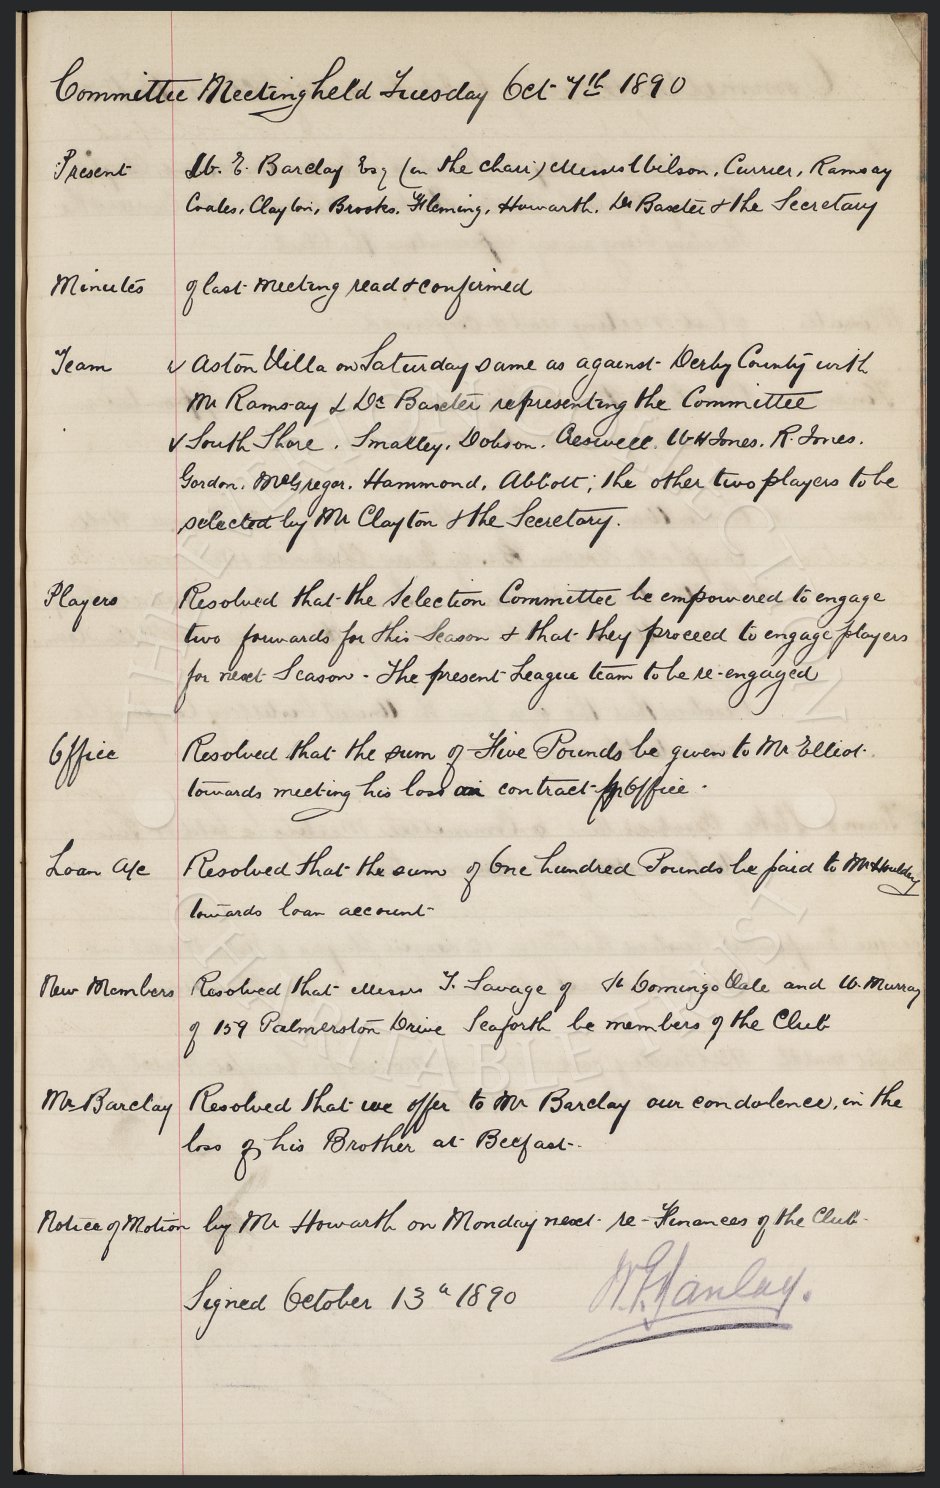 Committee Meeting held Tuesday Oct 7th 1890
Present W. E. Barclay Esq (in the chair) Messrs Wilson, Currier, Ramsay
Coates, Clayton, Brooks, Fleming, Howarth, Dr Baxter & the Secretary
Minutes of last meeting read & confirmed
Team √ Aston Villa on Saturday same as against Derby County with
Mr Ramsay & Dr Baxter representing the Committee
√ South Shore. Smalley. Dobson. Creswell. W H Jones. R. Jones.
Gordon. McGregor. Hammond. Abbott; the other two players to be
selected by Mr Clayton & the Secretary.
Players Resolved that the Selection Committee be empowered to engage
two forwards for this Season & that they proceed to engage players
for next Season - The present League team to be re-engaged
Office Resolved that the sum of Five Pounds be given to Mr Elliot
towards meeting his loss on contract for Office.
Loan a/c Resolved that the sum of One hundred Pounds be paid to Mr Houlding
towards loan account
New Members Resolved that Messrs T. Savage of St Domingo Vale and W. Murray
of 159 Palmerston Drive Seaforth be members of the Club
Mr Barclay Resolved that we offer to Mr Barclay our condolence, in the
loss of his Brother at Belfast.
Notice of Motion by Mr Howarth on Monday next re-Finances of the Club
Signed October 13th 1890